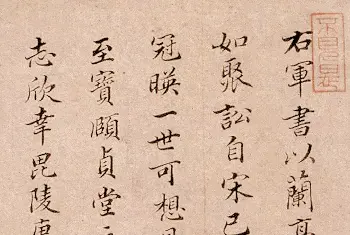 右軍書以蘭亭
如聚訟自宋已
冠暎一世可想見
至寶頤貞堂
志欣幸毘陵唐